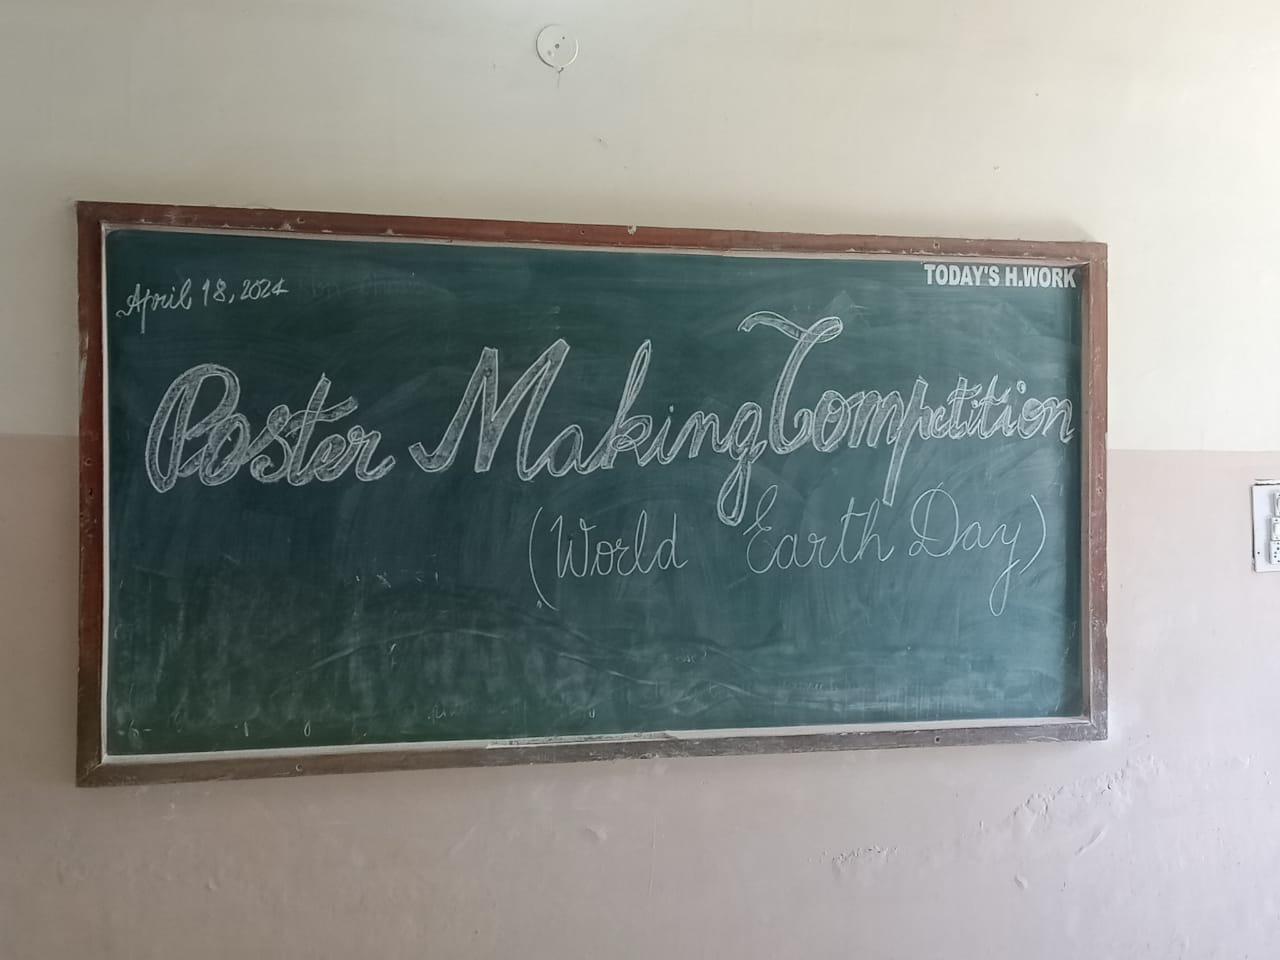 TODAY'S H.WORK
April 18, 2024
Poster Making Competition
(World Earth Day)